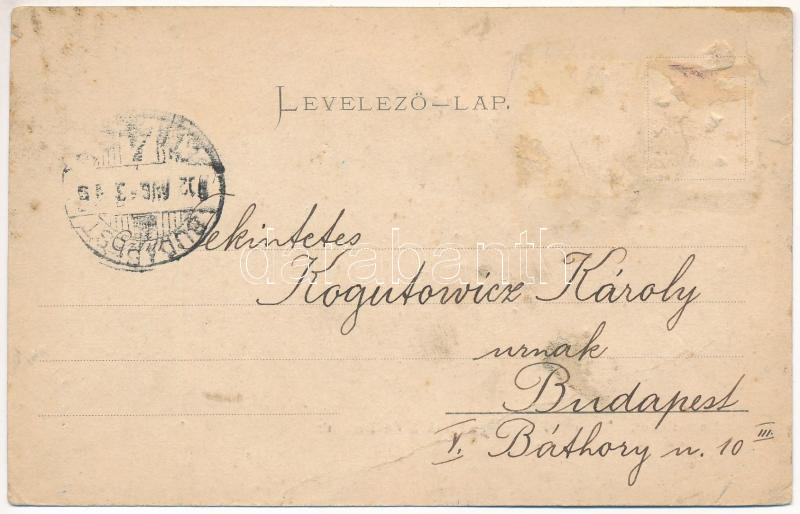 LEVELEZŐ—LAP.
BUDAPEST
902 AUG
Tekintetes
Kogutowicz Károly
urnak
Budapest
V. Báthory u. 10 III.
darabanth